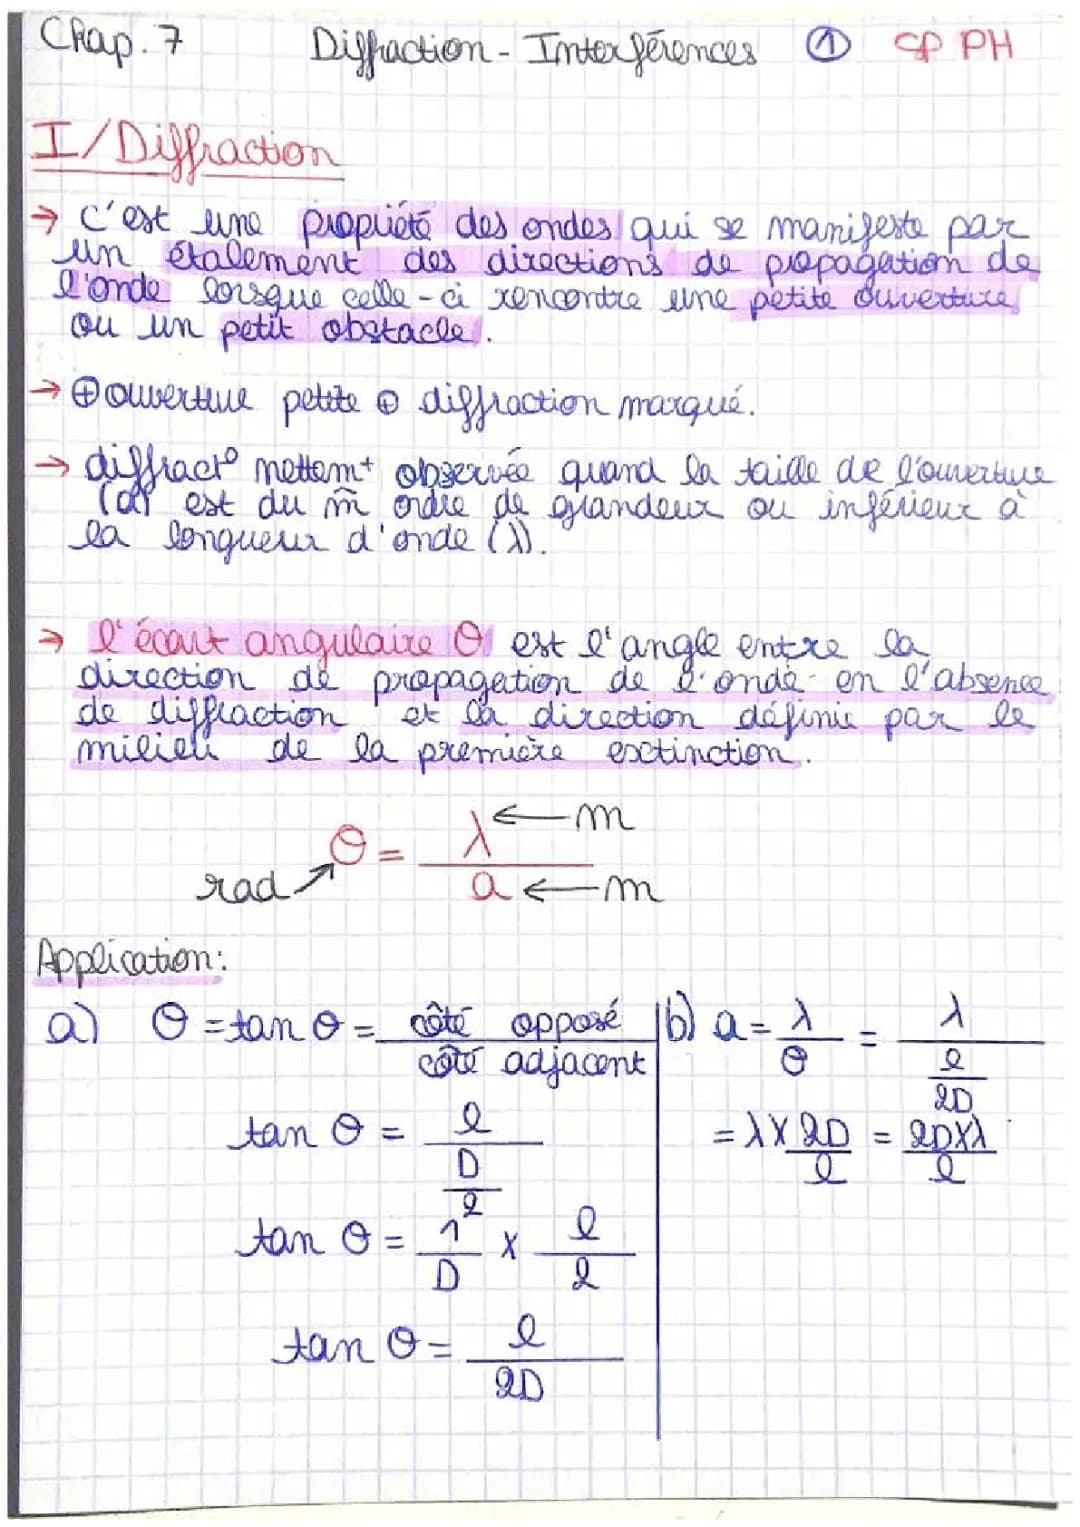 Chap. 7 Diffraction - Interférences ① SP PH
I/ Diffraction
→ C'est une propriété des ondes qui se manifeste par
un étalement des directions de propagation de
l'onde lorsque celle-ci rencontre une petite ouverture
ou un petit obstacle.
→ ⊕ ouverture petite ⊕ diffraction marqué.
→ diffract° nettem+ observée quand la taille de l'ouverture
(a) est du m̄ ordre de grandeur ou inférieur à
la longueur d'onde (λ).
→ l'écart angulaire θ est l'angle entre la
direction de propagation de l'onde en l'absence
de diffraction et la direction définie par le
milieu de la première extinction.
rad → θ = λ ← m / a ← m
Application:
a) θ = tan θ = côté opposé / côté adjacent
tan θ = l / D / 2
tan θ = 1 / D × l / 2
tan θ = l / 2D
b) a = λ / θ = λ / l / 2D
= λ × 2D / l = 2D×λ / l